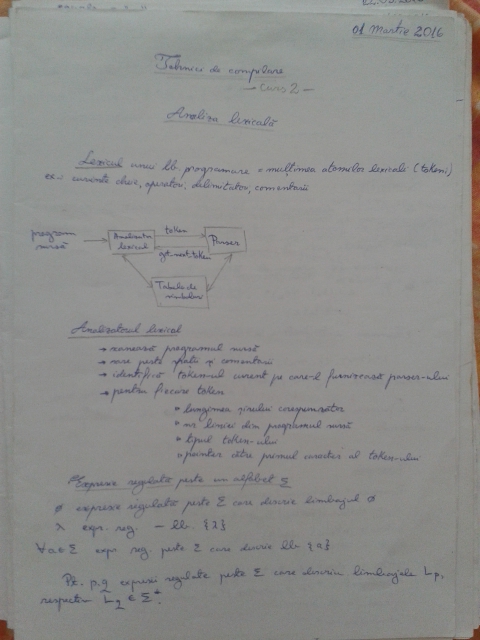 01 Martie 2016
Tehnici de compilare
- Curs 2 -
Analiza lexicală
Lexicul unui lb. programare = mulțimea atomilor lexicali (tokeni)
ex: cuvinte cheie, operatori, delimitatori, comentarii
program sursă
Analizator lexical
token
get next token
Parser
Tabela de simboluri
Analizatorul lexical
→ scanează programul sursă
→ sare peste spații și comentarii
→ identifică tokenul curent pe care-l furnizează parser-ului
→ pentru fiecare token
• lungimea șirului corespunzător
• nr liniei din programul sursă
• tipul token-ului
• pointer către primul caracter al token-ului
Expresie regulată peste un alfabet Σ
∅ expresie regulată peste Σ care descrie limbajul ∅
λ expr. reg. - lb. {λ}
∀a∈Σ expr reg. peste Σ care descrie lb. {a}
Pt. p, q expresii regulate peste Σ care descriu limbajele Lp,
respectiv Lq ∈ Σ*.